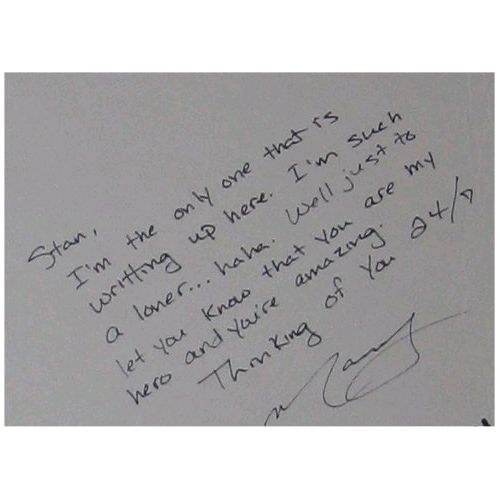 Stan,
I'm the only one that is
writting up here. I'm such
a loner... haha. Well just to
let you know that you are my
hero and you're amazing.
Thinking of you 24/7